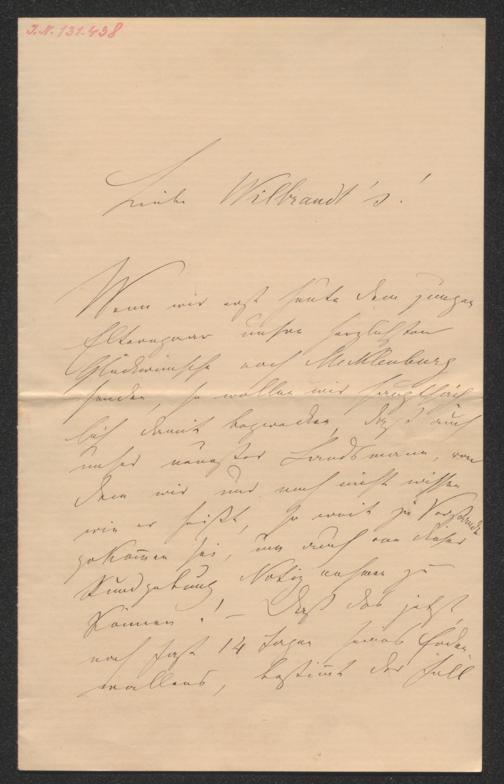 J.N. 131.438
Liebe Wilbrandt's!
Wenn wir erst heute dem jungen
Elternpaar unsre herzlichsten
Glückwünsche nach Mecklenburg
senden, so wollen wir hauptsäch
lich damit bezwecken, daß auch
unser neuester Landsmann, von
dem wir nur noch nicht wissen
wie er heißt, so weit zu Verstande
gekom̅en sei, um auch von dieser
Kundgebung Notiz nehmen zu
können! – Daß das jetzt
nach fast 14 Tagen seines Erden
wallens, bestim̅t der Fall